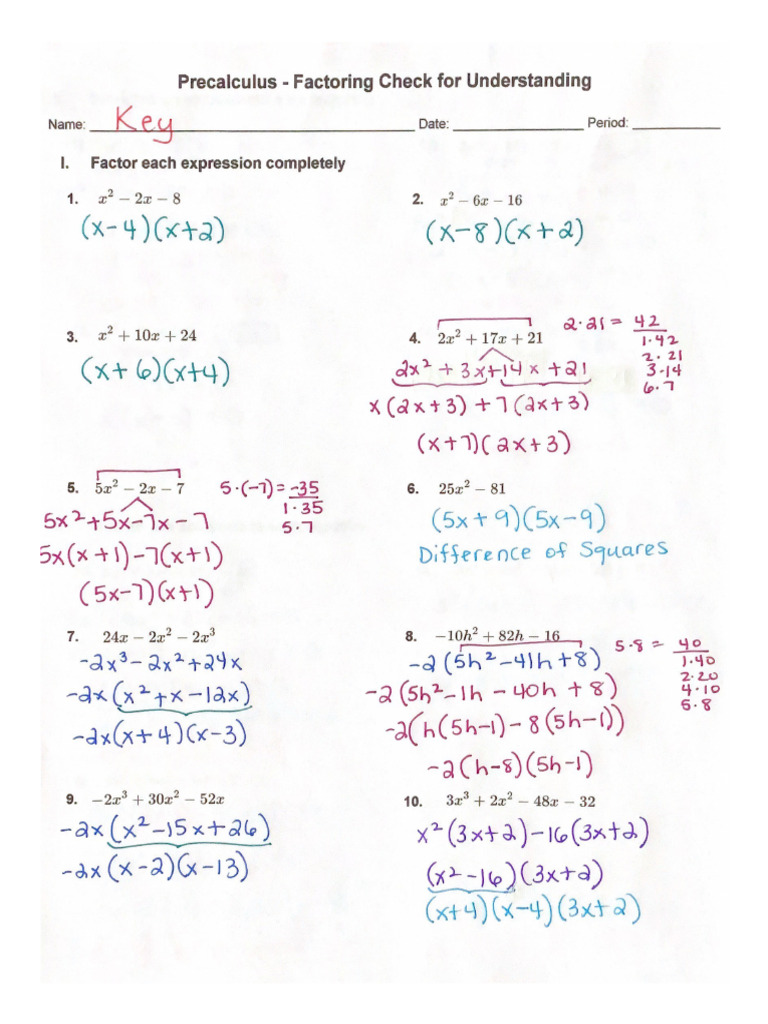 Precalculus - Factoring Check for Understanding
Name: Key Date: Period:
I. Factor each expression completely
1. x² − 2x − 8
(x-4)(x+2)
2. x² − 6x − 16
(x-8)(x+2)
3. x² + 10x + 24
(x+6)(x+4)
4. 2x² + 17x + 21
2·21 = 42
1·42
2·21
3·14
6·7
2x² + 3x+14x +21
x(2x+3) +7(2x+3)
(x+7)(2x+3)
5. 5x² − 2x − 7
5·(-7)= -35
1·35
5·7
5x²+5x-7x-7
5x(x+1)-7(x+1)
(5x-7)(x+1)
6. 25x² − 81
(5x+9)(5x-9)
Difference of Squares
7. 24x − 2x² − 2x³
-2x³-2x²+24x
-2x(x²+x-12x)
-2x(x+4)(x-3)
8. −10h² + 82h − 16
5·8 = 40
1·40
2·20
4·10
5·8
-2(5h²-41h+8)
-2(5h²-1h-40h+8)
-2(h(5h-1)-8(5h-1))
-2(h-8)(5h-1)
9. −2x³ + 30x² − 52x
-2x(x²-15x+26)
-2x(x-2)(x-13)
10. 3x³ + 2x² − 48x − 32
x²(3x+2)-16(3x+2)
(x²-16)(3x+2)
(x+4)(x-4)(3x+2)